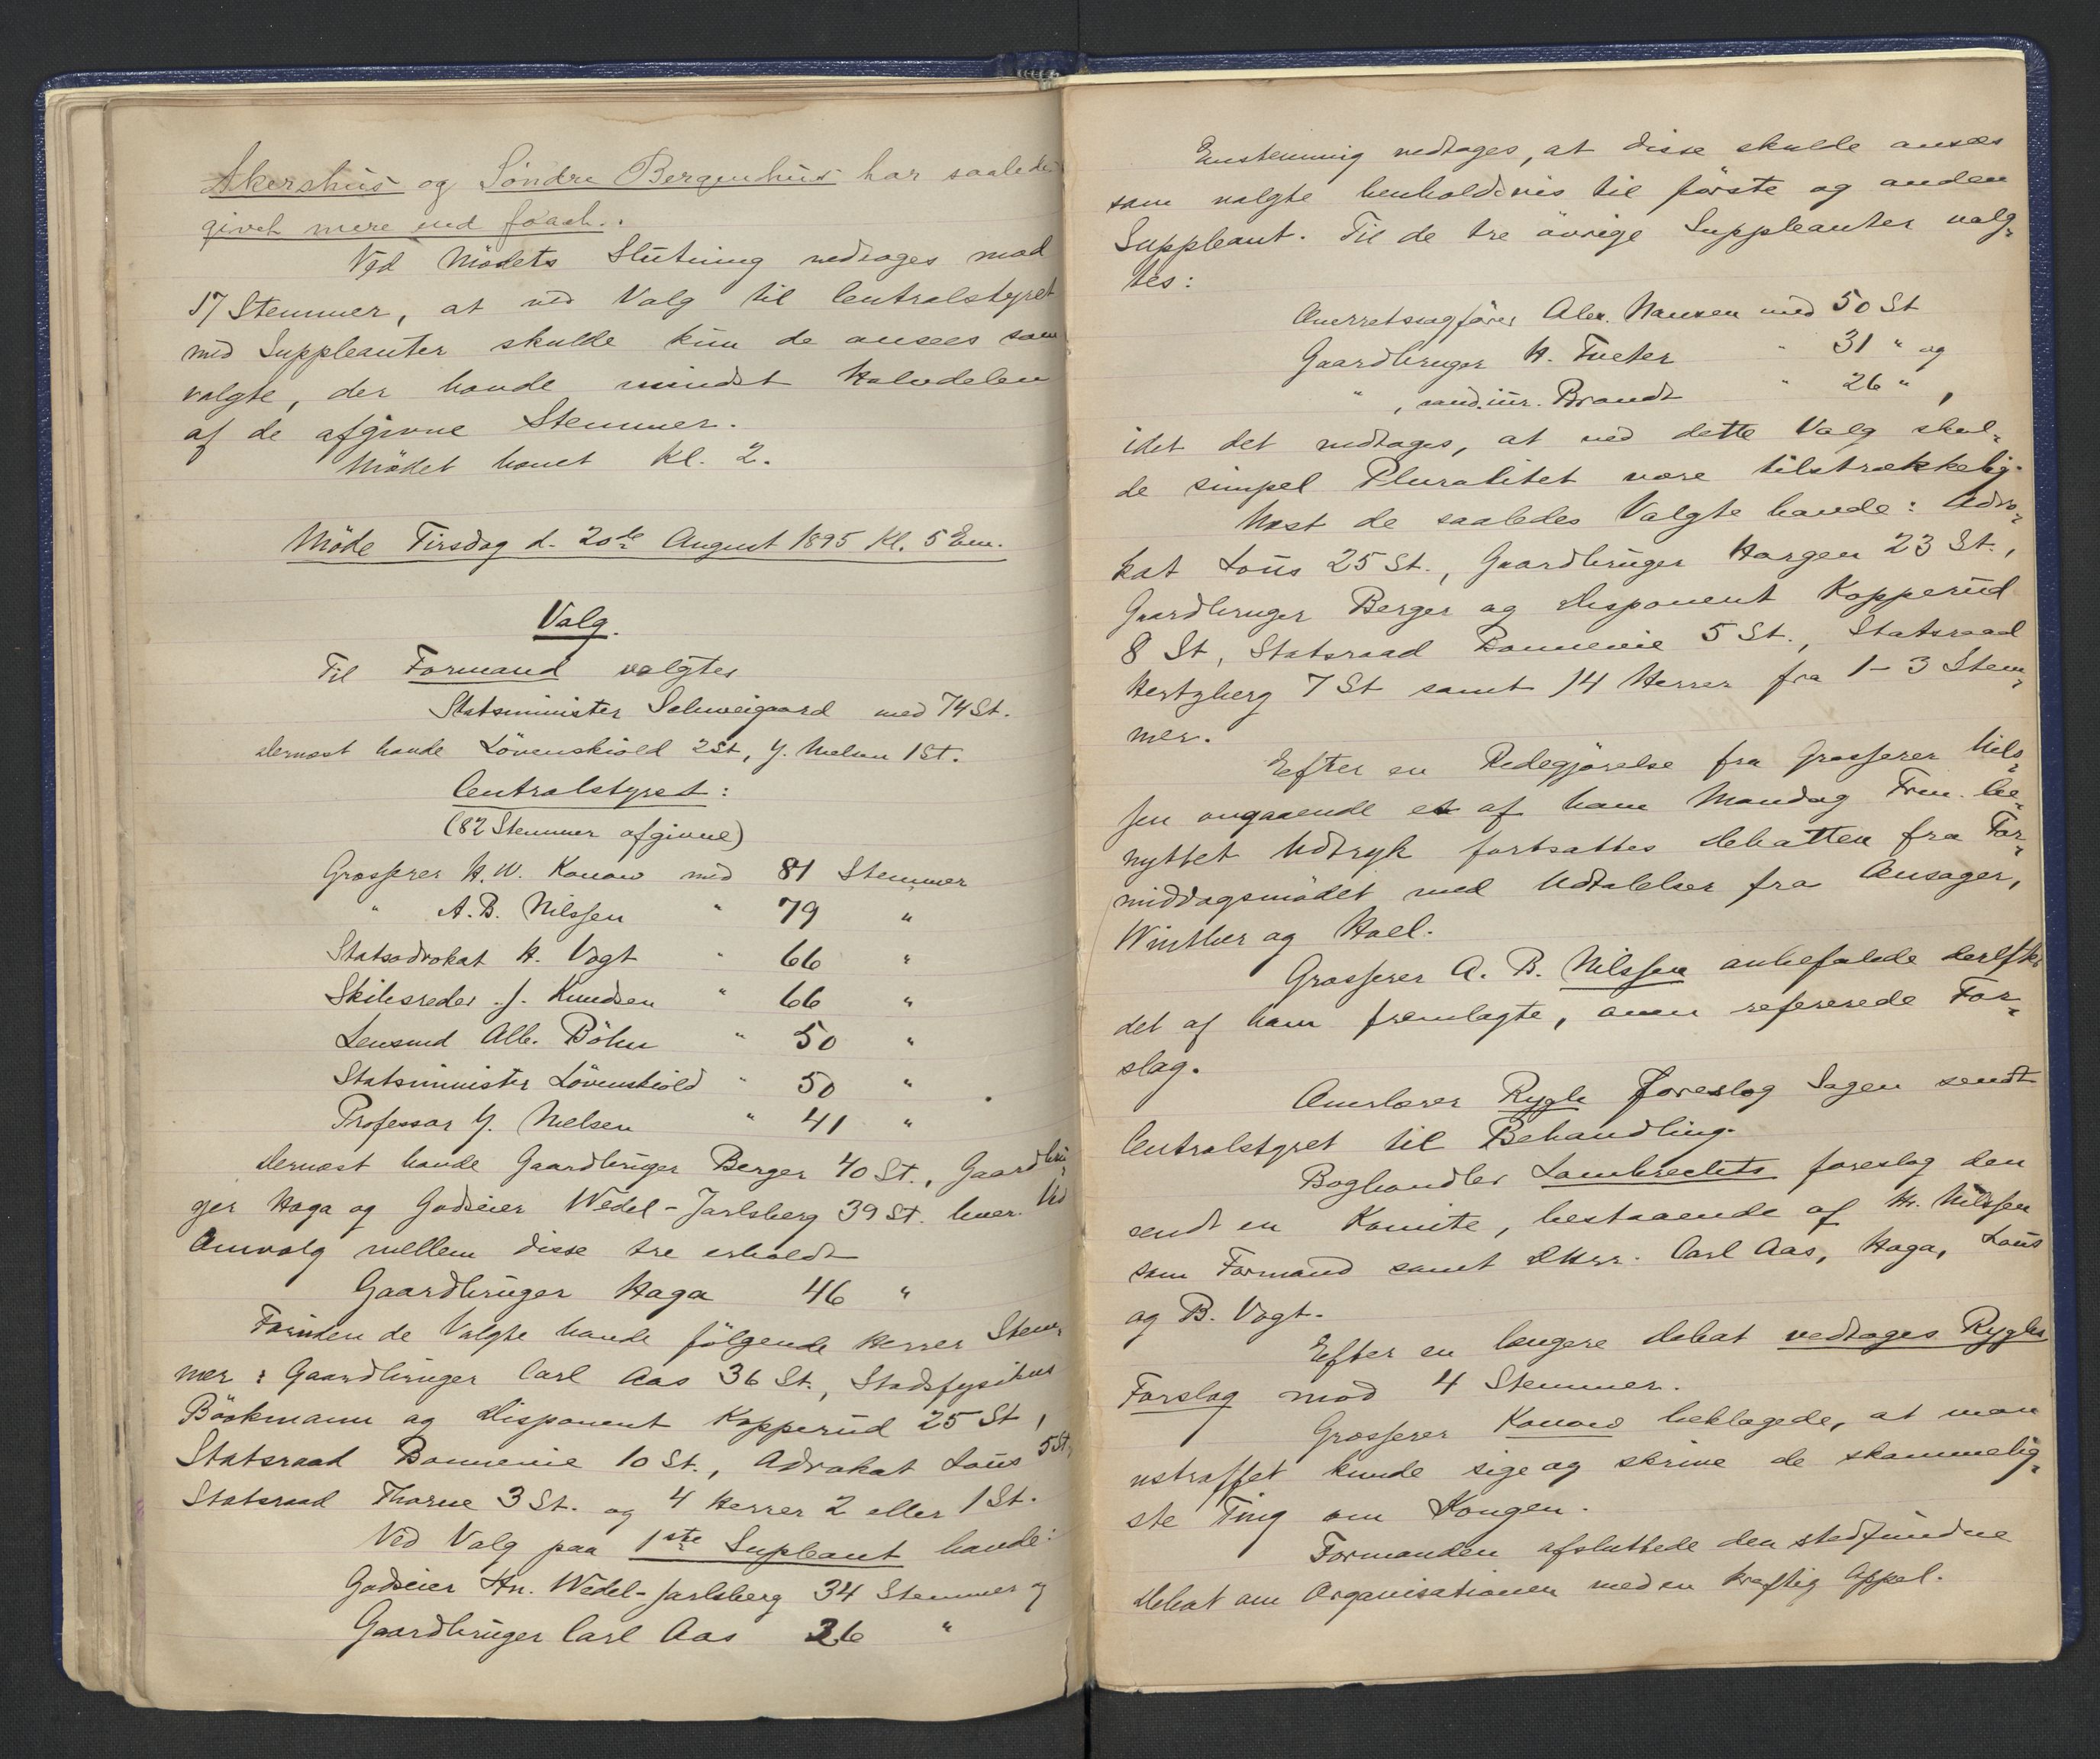 Akershus og Söndre Bergenhus har saaledes
givet mere end forach..
Ved Mödets Slutning vedtoges mod
17 Stemmer, at ved Valg til Centralstyret
med Suppleanter skulde kun de ansees som
valgte, der havde mindst Halvdelen
af de afgivne Stemmer.
Mödet hævet Kl. 2.
Möde Tirsdag d. 20de August 1895 Kl. 5 Em.
Valg.
Til Formand valgtes
Statsminister Schweigaard med 74 St.
Dernæst havde Lövenskiold 2 St, Y. Nielsen 1 St.
Centralstyret:
(82 Stemmer afgivne)
Grosserer H. W. Konow med 81 Stemmer
" A. B. Nilssen " 79 "
Statsadvokat H. Vogt " 66 "
Skibsreder J. Knudsen " 66 "
Lensmd Alb. Böhn " 50 "
Statsminister Lövenskiold " 50 "
Professor Y. Nielsen " 41 "
Dernæst havde Gaardbruger Berger 40 St., Gaardbru-
ger Haga og Godseier Wedel-Jarlsberg 39 St. hver. Ved
Omvalg mellem disse tre erholdt
Gaardbruger Haga 46 "
Foruden de Valgte havde fölgende Herrer Stem-
mer: Gaardbruger Carl Aas 36 St., Stadsfysikus
Böckmann og Disponent Kopperud 25 St,
Statsraad Bonnevie 10 St., Advokat Lous 5 St,
Statsraad Thorne 3 St. og 4 Herrer 2 eller 1 St.
Ved Valg paa 1ste Supleant havde:
Godseier Hn. Wedel-Jarlsberg 34 Stemmer og
Gaardbruger Carl Aas 36 "
Enstemmig vedtoges, at disse skulde ansees
som valgte henholdsvis til förste og anden
Suppleant. Til de tre övrige Suppleanter valg-
tes:
Overretssagförer Alex. Hansen med 50 St
Gaardbruger H. Fueter " 31 " og
" , cand. jur. Brandt " 26 ",
idet det vedtoges, at ved dette Valg skul-
de simpel Pluralitet være tilstrækkelig.
Næst de saaledes Valgte havde: Advo-
kat Lous 25 St., Gaardbruger Horgen 23 St.,
Gaardbruger Berger og Disponent Kopperud
8 St, Statsraad Bonnevie 5 St., Statsraad
Hertzberg 7 St samt 14 Herrer fra 1-3 Stem-
mer.
Efter en Redegjörelse fra Grosserer Nils-
sen angaaende et af ham Mandag Frm. be-
nyttet Udtryk fortsattes Debatten fra For-
middagsmödet med Udtalelser fra Ousager,
Winther og Hoel.
Grosserer A. B. Nilssen anbefalede derefter
det af ham fremlagte, oven refererede For-
slag.
Overlærer Rygh foreslog Sagen sendt
Centralstyret til Behandling.
Boghandler Lambrechts foreslog den
sendt en Komite, bestaaende af Hr. Nilssen
som Formand samt DHrr. Carl Aas, Haga, Lous
og B. Vogt.
Efter en længere Debat vedtoges Ryghs
Forslag mod 4 Stemmer.
Grosserer Konow beklagede, at man
ustraffet kunde sige og skrive de skammelig-
ste Ting om Kongen.
Formanden afsluttede den stedfundne
Debat om Organisationen med en kraftig Appel.